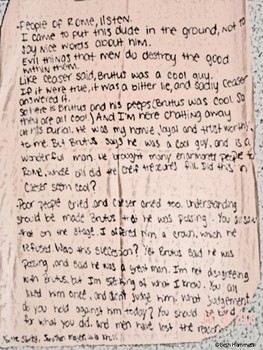 -People of Rome, listen.
I came to put this dude in the ground, not to
say nice words about him.
Evil things that men do destroy the good
within them.
Like Ceaser said, Brutus was a cool guy.
If it were true, it was a bitter lie, and sadly Ceaser
answered it.
So here is Brutus and his peeps (Brutus was cool. So
they are all cool) And I'm here chatting away
at his burial. He was my homie, loyal and trustworthy
to me. But Brutus says he was a cool guy, and is a
wonderful man. He brought many enamored people to
Rome, whole bill did the creep treasures fill. Did this in
Caeser seem cool?
Poor people cried and Caeser cried too. Understanding
should be made Brutus that he was passing. You all saw
that on the stage. I offered him a crown, which he
refused. Was this succession? Yet Brutus said he was
passing and said he was a great man. I'm not disagreeing
with Brutus, but I'm speaking of what I know. You all
liked him once, and don't judge him. What judgement
do you hold against him today? You should be
for what you did. And men have lost the reason.
© Beth Hammett